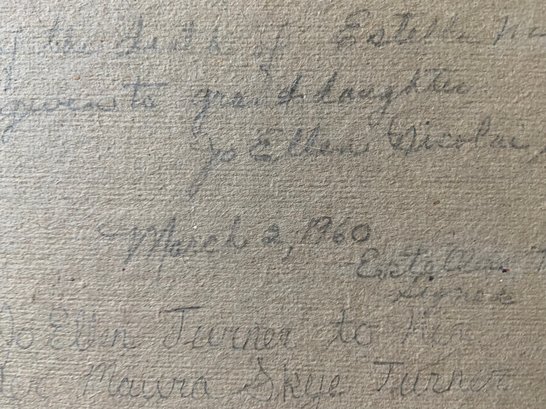 the death of Estella
given to granddaughter
Jo Ellen Nicolai,
March 2, 1960
signed
Jo Ellen Turner to her
Maura Skye Turner